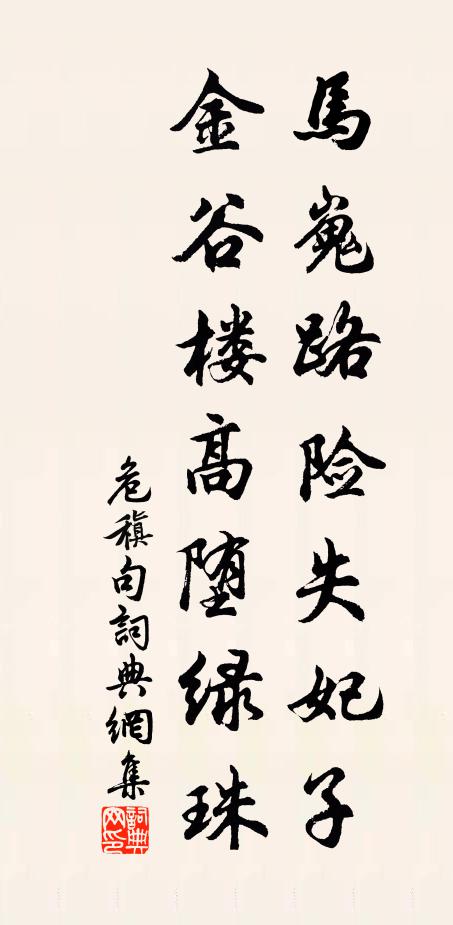 馬嵬路险失妃子
金谷楼高堕绿珠
危稹句詞典網集
詞典网印